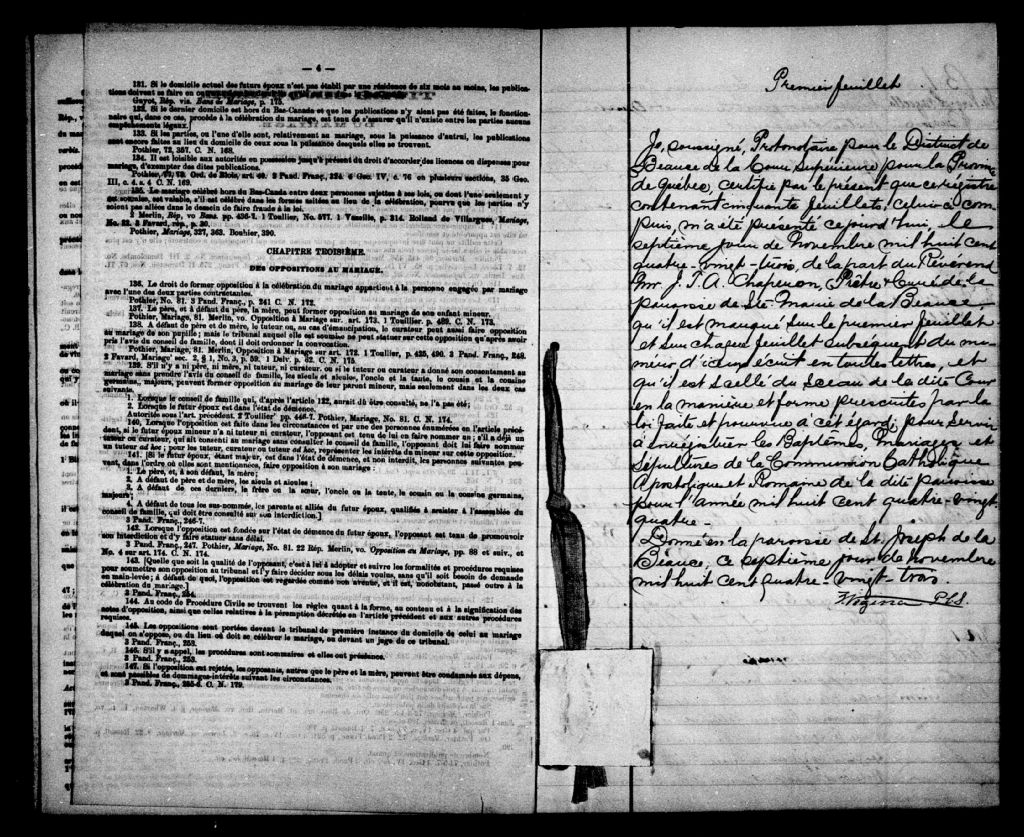 — 4 —
131. Si le domicile actuel des futurs époux n'est pas établi par une résidence de six mois au moins, les publications doivent se faire en
Guyot, Rép. vis. Bans de Mariage, p. 175.
132. Si le dernier domicile est hors du Bas-Canada et que les publications n'y aient pas été faites, le fonctionnaire qui, dans ce cas, procède à la célébration du mariage, est tenu de s'assurer qu'il n'existe entre les parties aucun empêchements légaux.]
133. Si les parties, ou l'une d'elles, sont, relativement au mariage, sous la puissance d'autrui, les publications sont encore faites au lieu du domicile de ceux sous la puissance desquels elles se trouvent.
Pothier, 72, 357. C. N. 168.
134. Il est loisible aux autorités en possession jusqu'à présent du droit d'accorder des licences ou dispenses pour mariage, d'exempter des dites publications.
Pothier, 77, 78. Ord. de Blois, art 40. 2 Pand. Franç., 224. 6 Geo. IV, c. 76 en plusieurs sections, 35 Geo. III, c. 4. s. 4 C. N. 169.
135. Le mariage célébré hors du Bas-Canada entre deux personnes sujettes à ses lois, ou dont l'une seulement y est soumise, est valable, s'il est célébré dans les formes usitées au lieu de la célébration, pourvu que les parties n'y soient pas allées dans le dessein de faire fraude à la loi.
2 Merlin, Rép, vo Bans. pp. 436-7. 1 Toullier, No. 577. 1 Vazeille, p. 214. Rolland de Villargues, Mariage, No. 22. 3 Favard, rép, p. 30.
Pothier, Mariage, 327, 363. Bouhier, 390.
CHAPITRE TROISIÈME.
DES OPPOSITIONS AU MARIAGE.
136. Le droit de former opposition à la célébration du mariage appartient à la personne engagée par mariage avec l'une des deux parties contractantes.
Pothier, No. 81. 3 Pand. Franç., p. 241 C. N. 172.
137. Le père, et à défaut du père, la mère, peut former opposition au mariage de son enfant mineur.
Pothier, Mariage, 81. Merlin, vo. Opposition à Mariage sur. art. 173. 1 Toullier p. 488. C. N. 173.
138. A défaut de père et de mère, le tuteur ou, au cas d'émancipation, le curateur peut aussi faire opposition au mariage de son pupille; mais le tribunal auquel elle est soumise ne peut statuer sur cette opposition qu'après avoir pris l'avis du conseil de famille, dont il doit ordonner la convocation.
Pothier, Mariage, 81. Merlin, Opposition à Mariage sur art. 172. 1 Toullier, p. 425, 490. 3 Pand. Franç., 248. 2 Favard, Mariage sec. 2, § 1, No. 3, p. 52. 1 Delv. p. 62. C. N. 175.
139. S'il n'y a ni père, ni mère, ni tuteur, ni curateur, ou si le tuteur ou curateur a donné son consentement au mariage sans prendre l'avis du conseil de famille, les aïeuls et aïeules, l'oncle et la tante, le cousin et la cousine germains, majeurs, peuvent former opposition au mariage de leur parent mineur, mais seulement dans les deux cas suivants.
1. Lorsque le conseil de famille qui, d'après l'article 122, aurait dû être consulté, ne l'a pas été;
2. Lorsque le futur époux est dans l'état de démence.
Autorités sous l'art. précédent. 2 Toullier pp. 446-7. Pothier, Mariage, No. 81. C. N. 174.
140. Lorsque l'opposition est faite dans les circonstances et par une des personnes énoncées en l'article précédent, si le futur époux mineur n'a ni tuteur ni curateur, l'opposant est tenu de lui en faire nommer un; s'il a déjà un tuteur ou curateur, qui ait consenti au mariage sans consulter le conseil de famille, l'opposant doit lui faire nommer un tuteur ad hoc; pour les tuteur, curateur ou tuteur ad hoc, représenter les intérêts du mineur sur cette opposition.
141. [Si le futur époux, étant majeur, est dans l'état de démence, et non interdit, les personnes suivantes peuvent, dans l'ordre où elles sont mentionnées, faire opposition à son mariage :
1. Le père, et, à son défaut, la mère;
2. A défaut de père et de mère, les aïeuls et aïeules;
3. A défaut de ces derniers, le frère ou la sœur, l'oncle ou la tante, le cousin ou la cousine germains, majeurs;
4. A défaut de tous les sus-nommés, les parents et alliés du futur époux, qualifiés à assister à l'assemblée du conseil de famille, qui doit être consulté sur son interdiction.]
3 Pand. Franç., 246-7.
142. Lorsque l'opposition est fondée sur l'état de démence du futur époux, l'opposant est tenu de promouvoir son interdiction et d'y faire statuer sans délai.
3 Pand. Franç., 247. Pothier, Mariage, No. 81. 22 Rép. Merlin, vo. Opposition au Mariage, pp. 88 et suiv., et No. 4 sur art. 174. C. N. 174.
143. [Quelle que soit la qualité de l'opposant, c'est à lui à adopter et suivre les formalités et procédures requises pour soumettre son opposition au tribunal et l'y faire décider sous les délais voulus, sans qu'il soit besoin de demande en main-levée; à défaut de quoi, l'opposition est regardée comme non avenue, et il est, nonobstant, passé outre à la célébration du mariage.]
3 Pand. Franç., 254.
144. Au code de Procédure Civile se trouvent les règles quant à la forme, au contenu et à la signification des actes d'opposition, ainsi que celles relatives à la péremption décrétée en l'article précédent et aux autres procédures requises.
145. Les oppositions sont portées devant le tribunal de première instance du domicile de celui au mariage duquel on s'oppose, ou du lieu où doit se célébrer le mariage, ou devant un juge de ce tribunal.
3 Pand. Franç., 253.
146. S'il y a appel, les procédures sont sommaires et elles ont préséance.
3 Pand. Franç., 253.
147. Si l'opposition est rejetée, les opposants, autres que le père et la mère, peuvent être condamnés aux dépens, et sont passibles de dommages-intérêts suivant les circonstances.
3 Pand. Franç., 255-6. C. N. 179.
Premier feuillet
Je, soussigné, Protonotaire pour le District de
Beauce de la Cour Supérieure pour la Provin
de Québec, certifie par le présent que ce régistre
contenant cinquante feuillets, celui-ci com-
pris, m'a été présenté ce jourd'hui, le
septième jour de Novembre mil huit cent
quatre-vingt-trois, de la part du Révérend
Mr. J. T. A. Chaperon, Prêtre & Curé de la
paroisse de Ste. Marie de la Beauce
qu'il est marqué sur le premier feuillet
et sur chaque feuillet subséquent du nu-
méro d'iceux écrit en toutes lettres, et
qu'il est scellé du sceau de la dite Cour
en la manière et forme prescrites par la
loi faite et pourvue à cet égard, pour servir
à enrégistrer les Baptêmes, Mariages et
Sépultures de la Communion Catholique
Apostolique et Romaine de la dite paroisse
pour l'année mil huit cent quatre-vingt
quatre.-
Donné en la paroisse de St. Joseph de la
Beauce, ce septième jour de novembre
mil huit cent quatre-vingt-trois.
P.C.S.